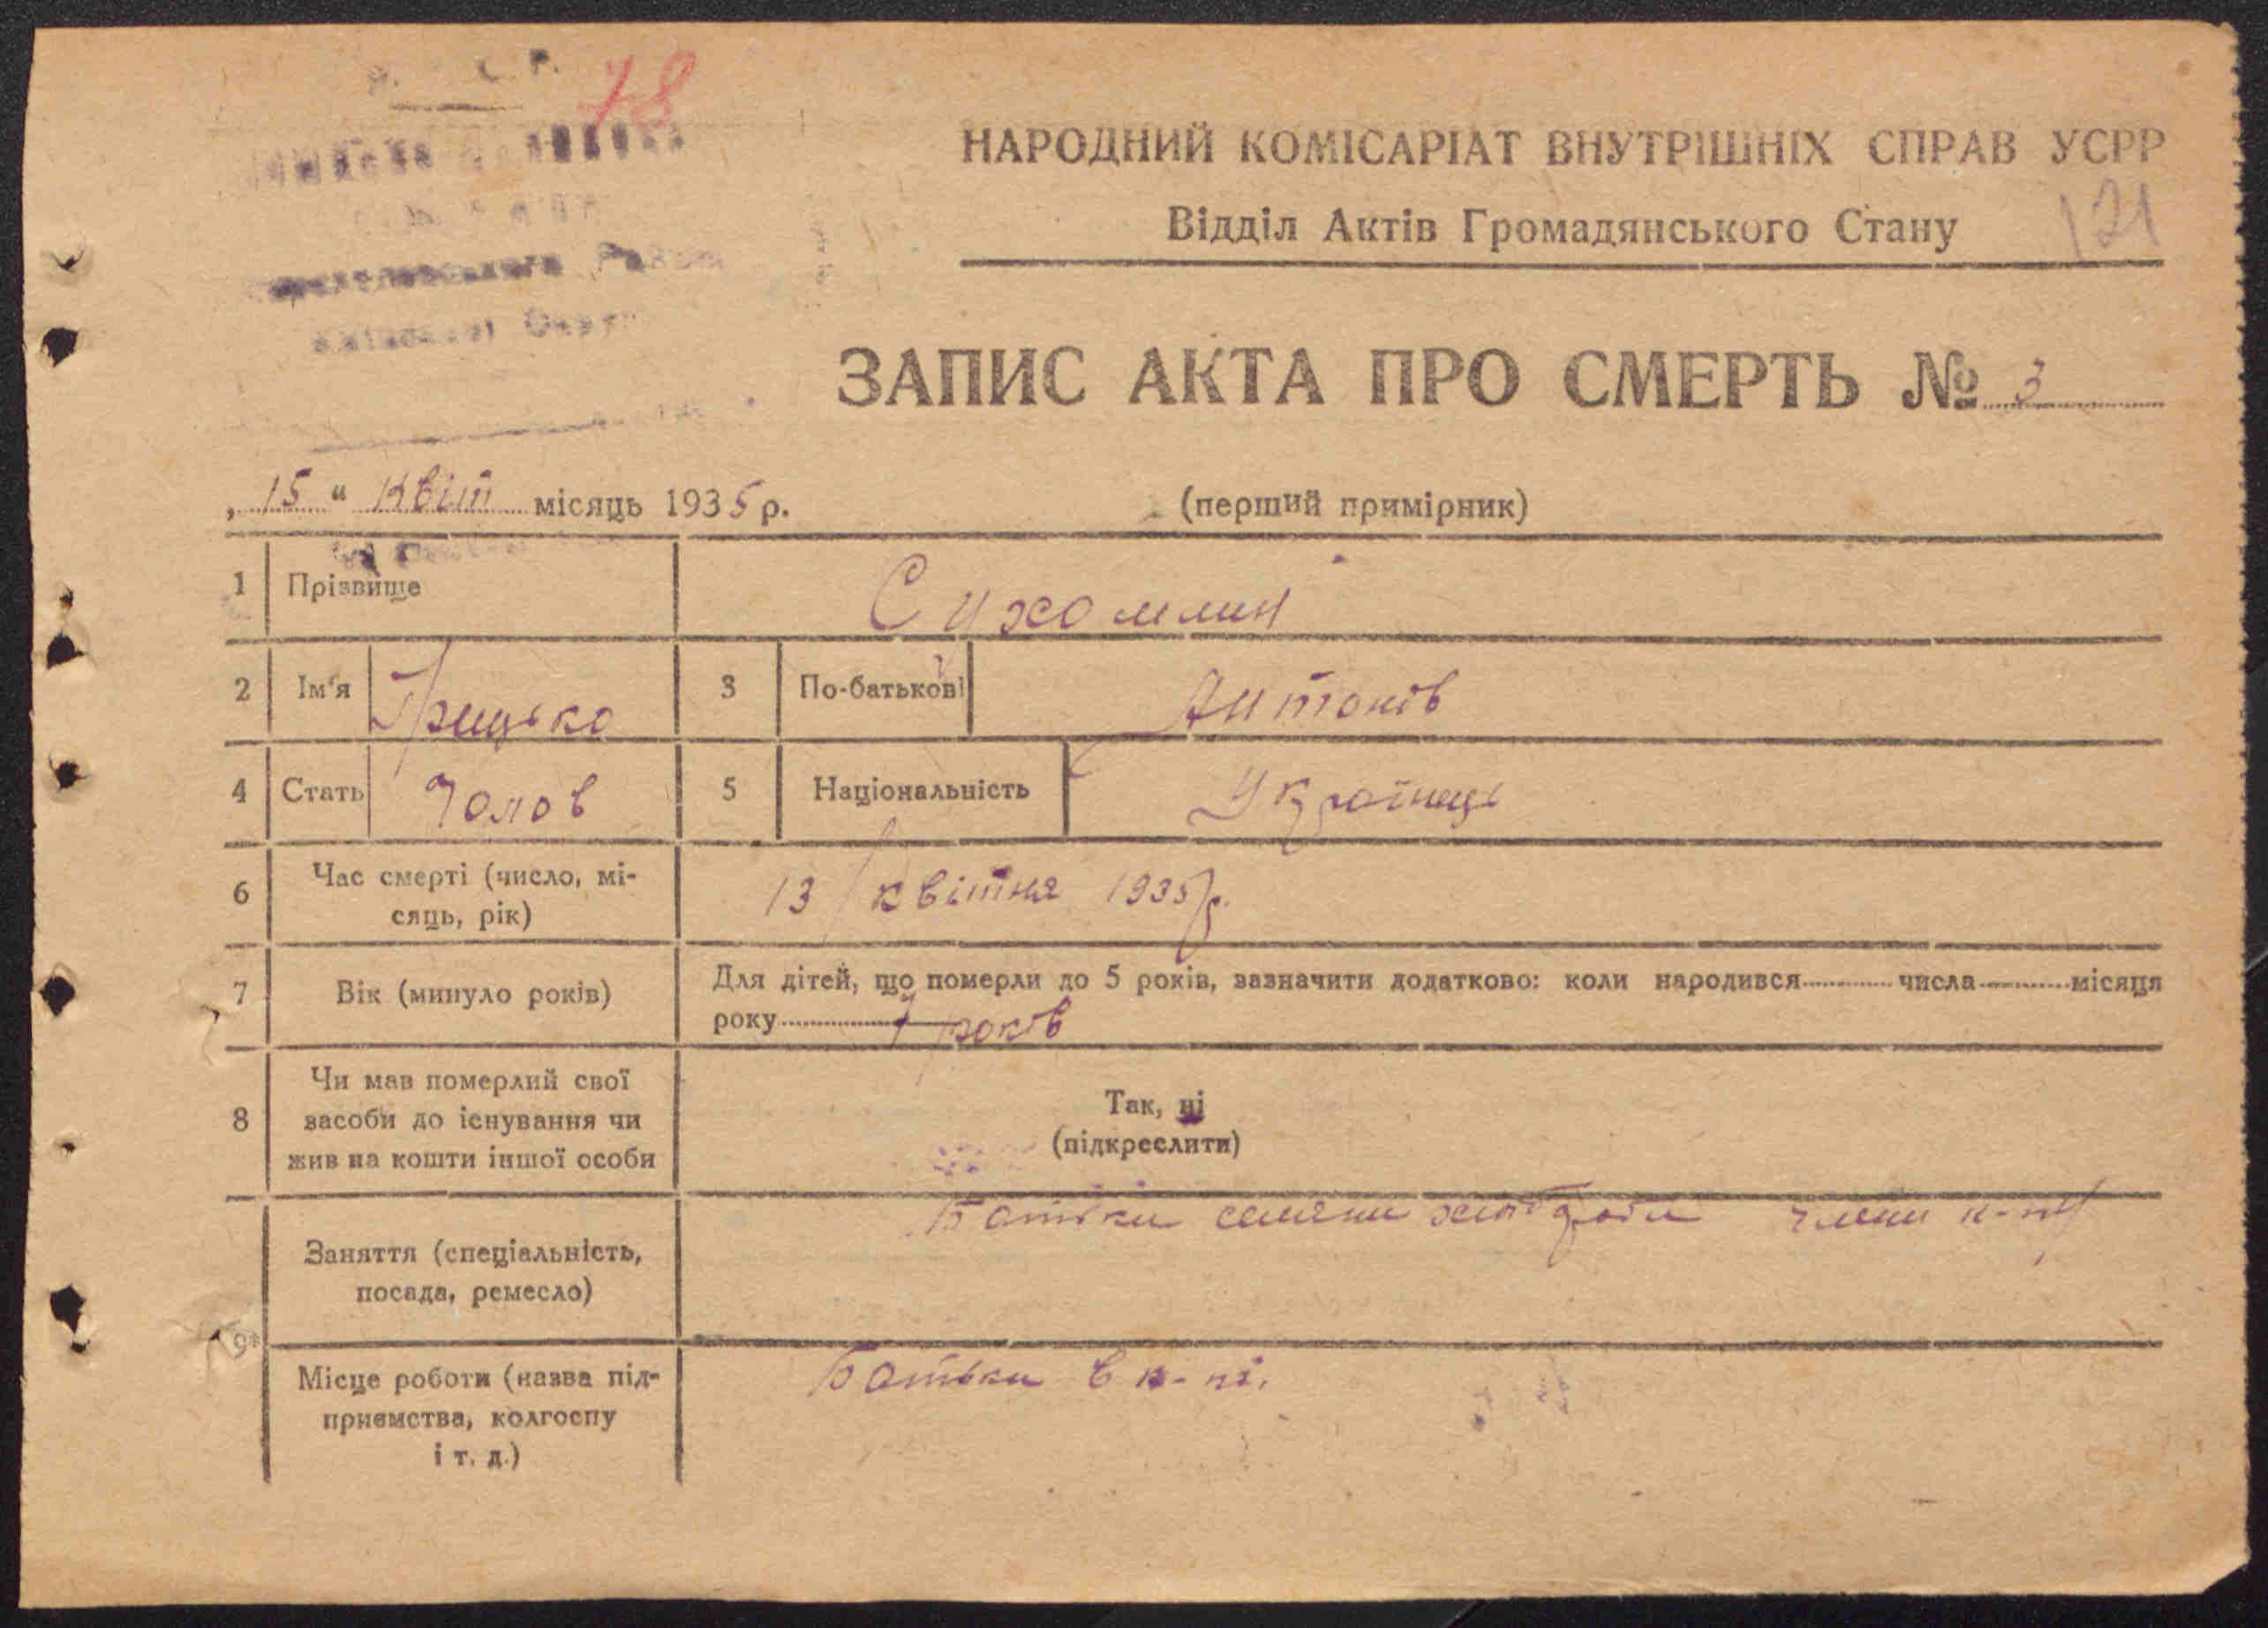 78
НАРОДНИЙ КОМІСАРІАТ ВНУТРІШНІХ СПРАВ УСРР
Відділ Актів Громадянського Стану
121
ЗАПИС АКТА ПРО СМЕРТЬ № 3
„ 15 “ Квіт місяць 1935 р.
(перший примірник)
1 Прізвище Сухомлин
2 Ім'я Грицько 3 По-батькові Антонів
4 Стать Чолов 5 Національність Українець
6 Час смерті (число, мі-
сяць, рік) 13 квітня 1935 р.
7 Вік (минуло років) Для дітей, що померли до 5 років, зазначити додатково: коли народився числа місяця
року 7 років
8 Чи мав померлий свої
засоби до існування чи
жив на кошти іншої особи
Так, ні
(підкреслити)
9* Заняття (спеціальність,
посада, ремесло)
Батьки хлібороби члени
Місце роботи (назва під-
приємства, колгоспу
і т. д.)
Батьки в к-пі.